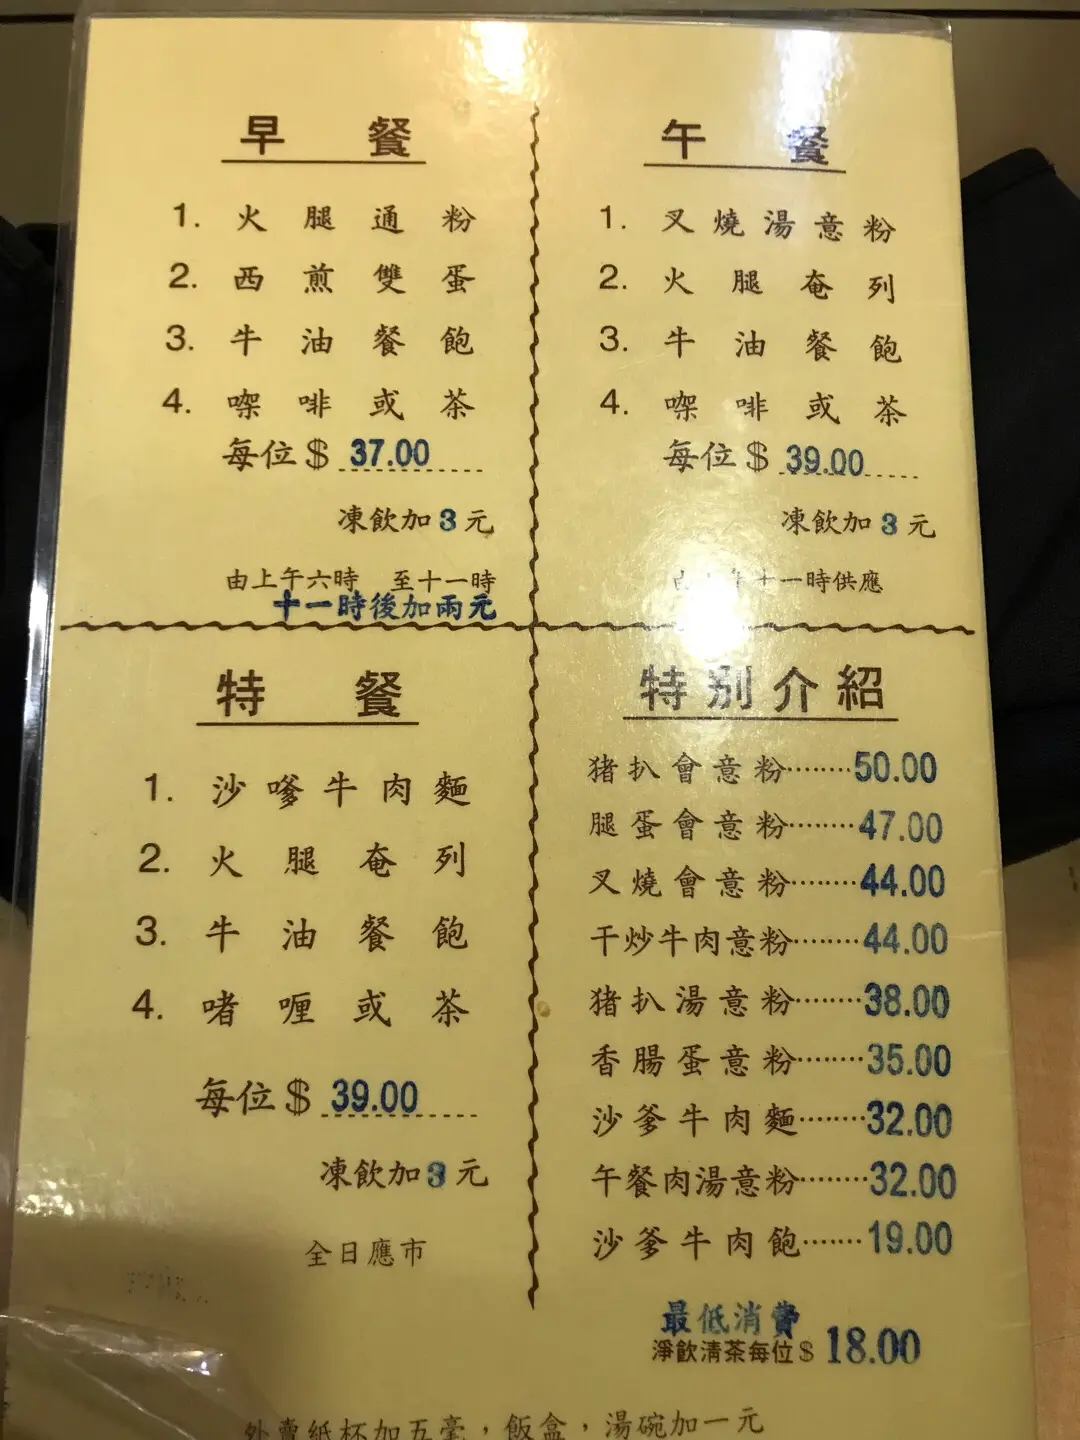 早餐
1. 火腿通粉
2. 西煎雙蛋
3. 牛油餐飽
4. 㗎啡或茶
每位$ 37.00
凍飲加3元
由上午六時 至十一時
十一時後加兩元
午餐
1. 叉燒湯意粉
2. 火腿奄列
3. 牛油餐飽
4. 㗎啡或茶
每位$ 39.00
凍飲加3元
十一時供應
特餐
1. 沙嗲牛肉麵
2. 火腿奄列
3. 牛油餐飽
4. 啫喱或茶
每位$ 39.00
凍飲加3元
全日應市
特別介紹
猪扒會意粉········50.00
腿蛋會意粉········47.00
叉燒會意粉········44.00
干炒牛肉意粉········44.00
猪扒湯意粉········38.00
香腸蛋意粉········35.00
沙爹牛肉麵········32.00
午餐肉湯意粉········32.00
沙爹牛肉飽·······19.00
最低消費
淨飲清茶每位$ 18.00
外賣紙杯加五毫，飯盒，湯碗加一元